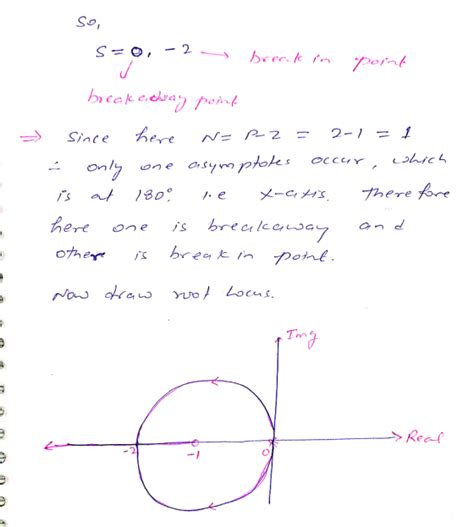 So,
S = 0, -2 → break in point
breakaway point
⇒ Since here N = P-Z = 2-1 = 1
∴ only one asymptotes occur, which
is at 180° i.e X-axis. Therefore
here one is breakaway and
other is break in point.
Now draw root Locus.
Img
-2 -1 0 Real